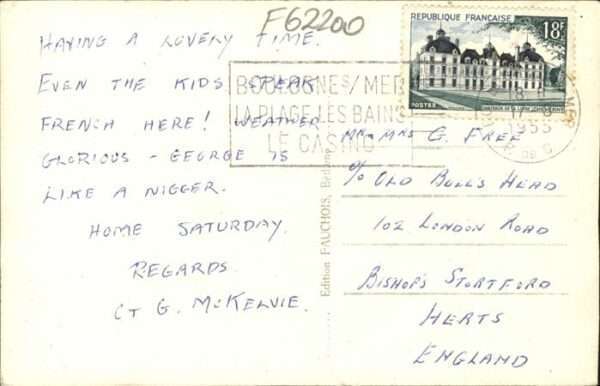 F62200
HAVING A LOVELY TIME.
EVEN THE KIDS SPEAK
FRENCH HERE! WEATHER
GLORIOUS - GEORGE IS
LIKE A NIGGER.
HOME SATURDAY.
REGARDS.
G. McKELVIE.
BOULOGNE S/MER
LA PLAGE LES BAINS
LE CASINO
Edition FAUCHOIS,
REPUBLIQUE FRANÇAISE
18F
POSTES
1955
MR & MRS G. FREE
% OLD BULL'S HEAD
102 LONDON ROAD
BISHOP'S STORTFORD
HERTS
ENGLAND